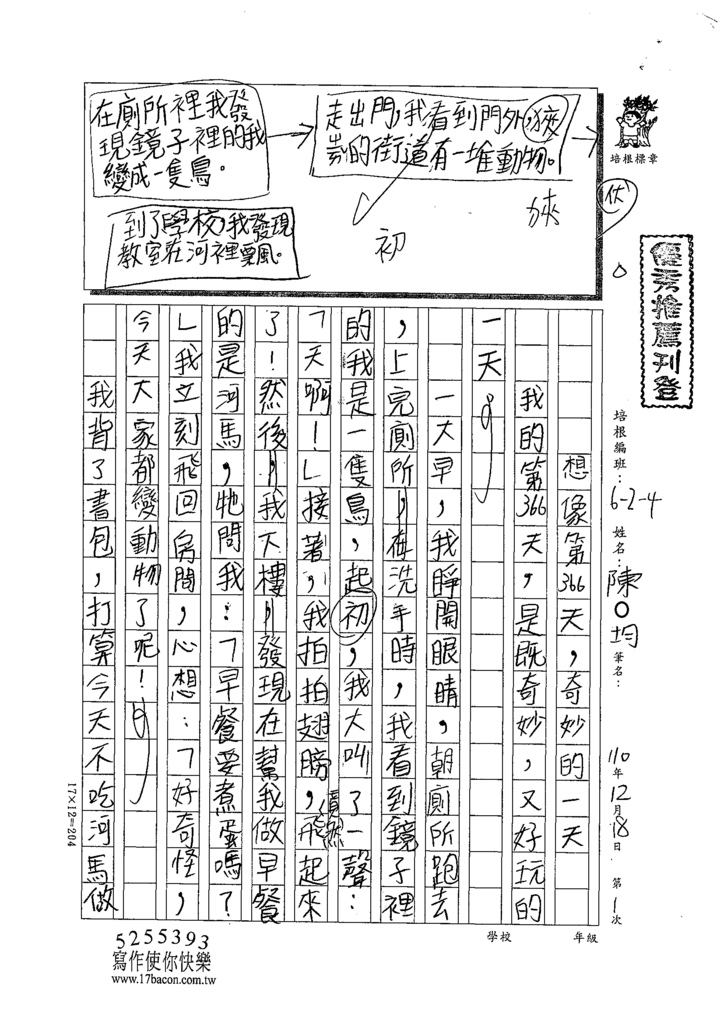 在廁所裡我發
現鏡子裡的我
變成一隻鳥。
走出門,我看到門外,狹
的街道有一堆動物。
到了學校,我發現
教室在河裡飄。
初
狹
伏
培根標章
優秀推薦刊登
培根編班:6-2-4 姓名:陳○均 筆名:
110年12月18日 第1次
想像第366天,奇妙的一天
我的第366天,是既奇妙,又好玩的
一天。
一大早,我睜開眼睛,朝廁所跑去
,上完廁所,在洗手時,我看到鏡子裡
的我是一隻鳥,起初,我大叫了一聲:
「天啊!」接著,我拍拍翅膀,竟然飛起來
了!然後,我下樓,發現在幫我做早餐
的是河馬,牠問我:「早餐要煮蛋嗎?
」我立刻飛回房間,心想:「好奇怪,
今天大家都變動物了呢!」
我背了書包,打算今天不吃河馬做
17×12=204
學校 年級
5255393
寫作使你快樂
www.17bacon.com.tw